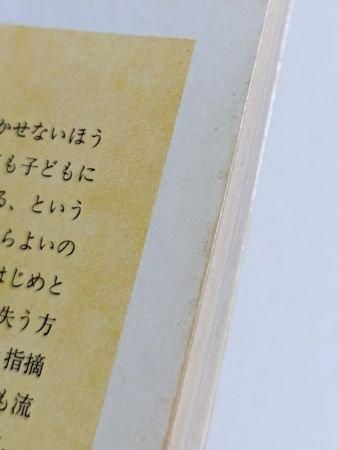 かせないほう
も子どもに
る、という
らよいの
はじめと
失う方
指摘
も流